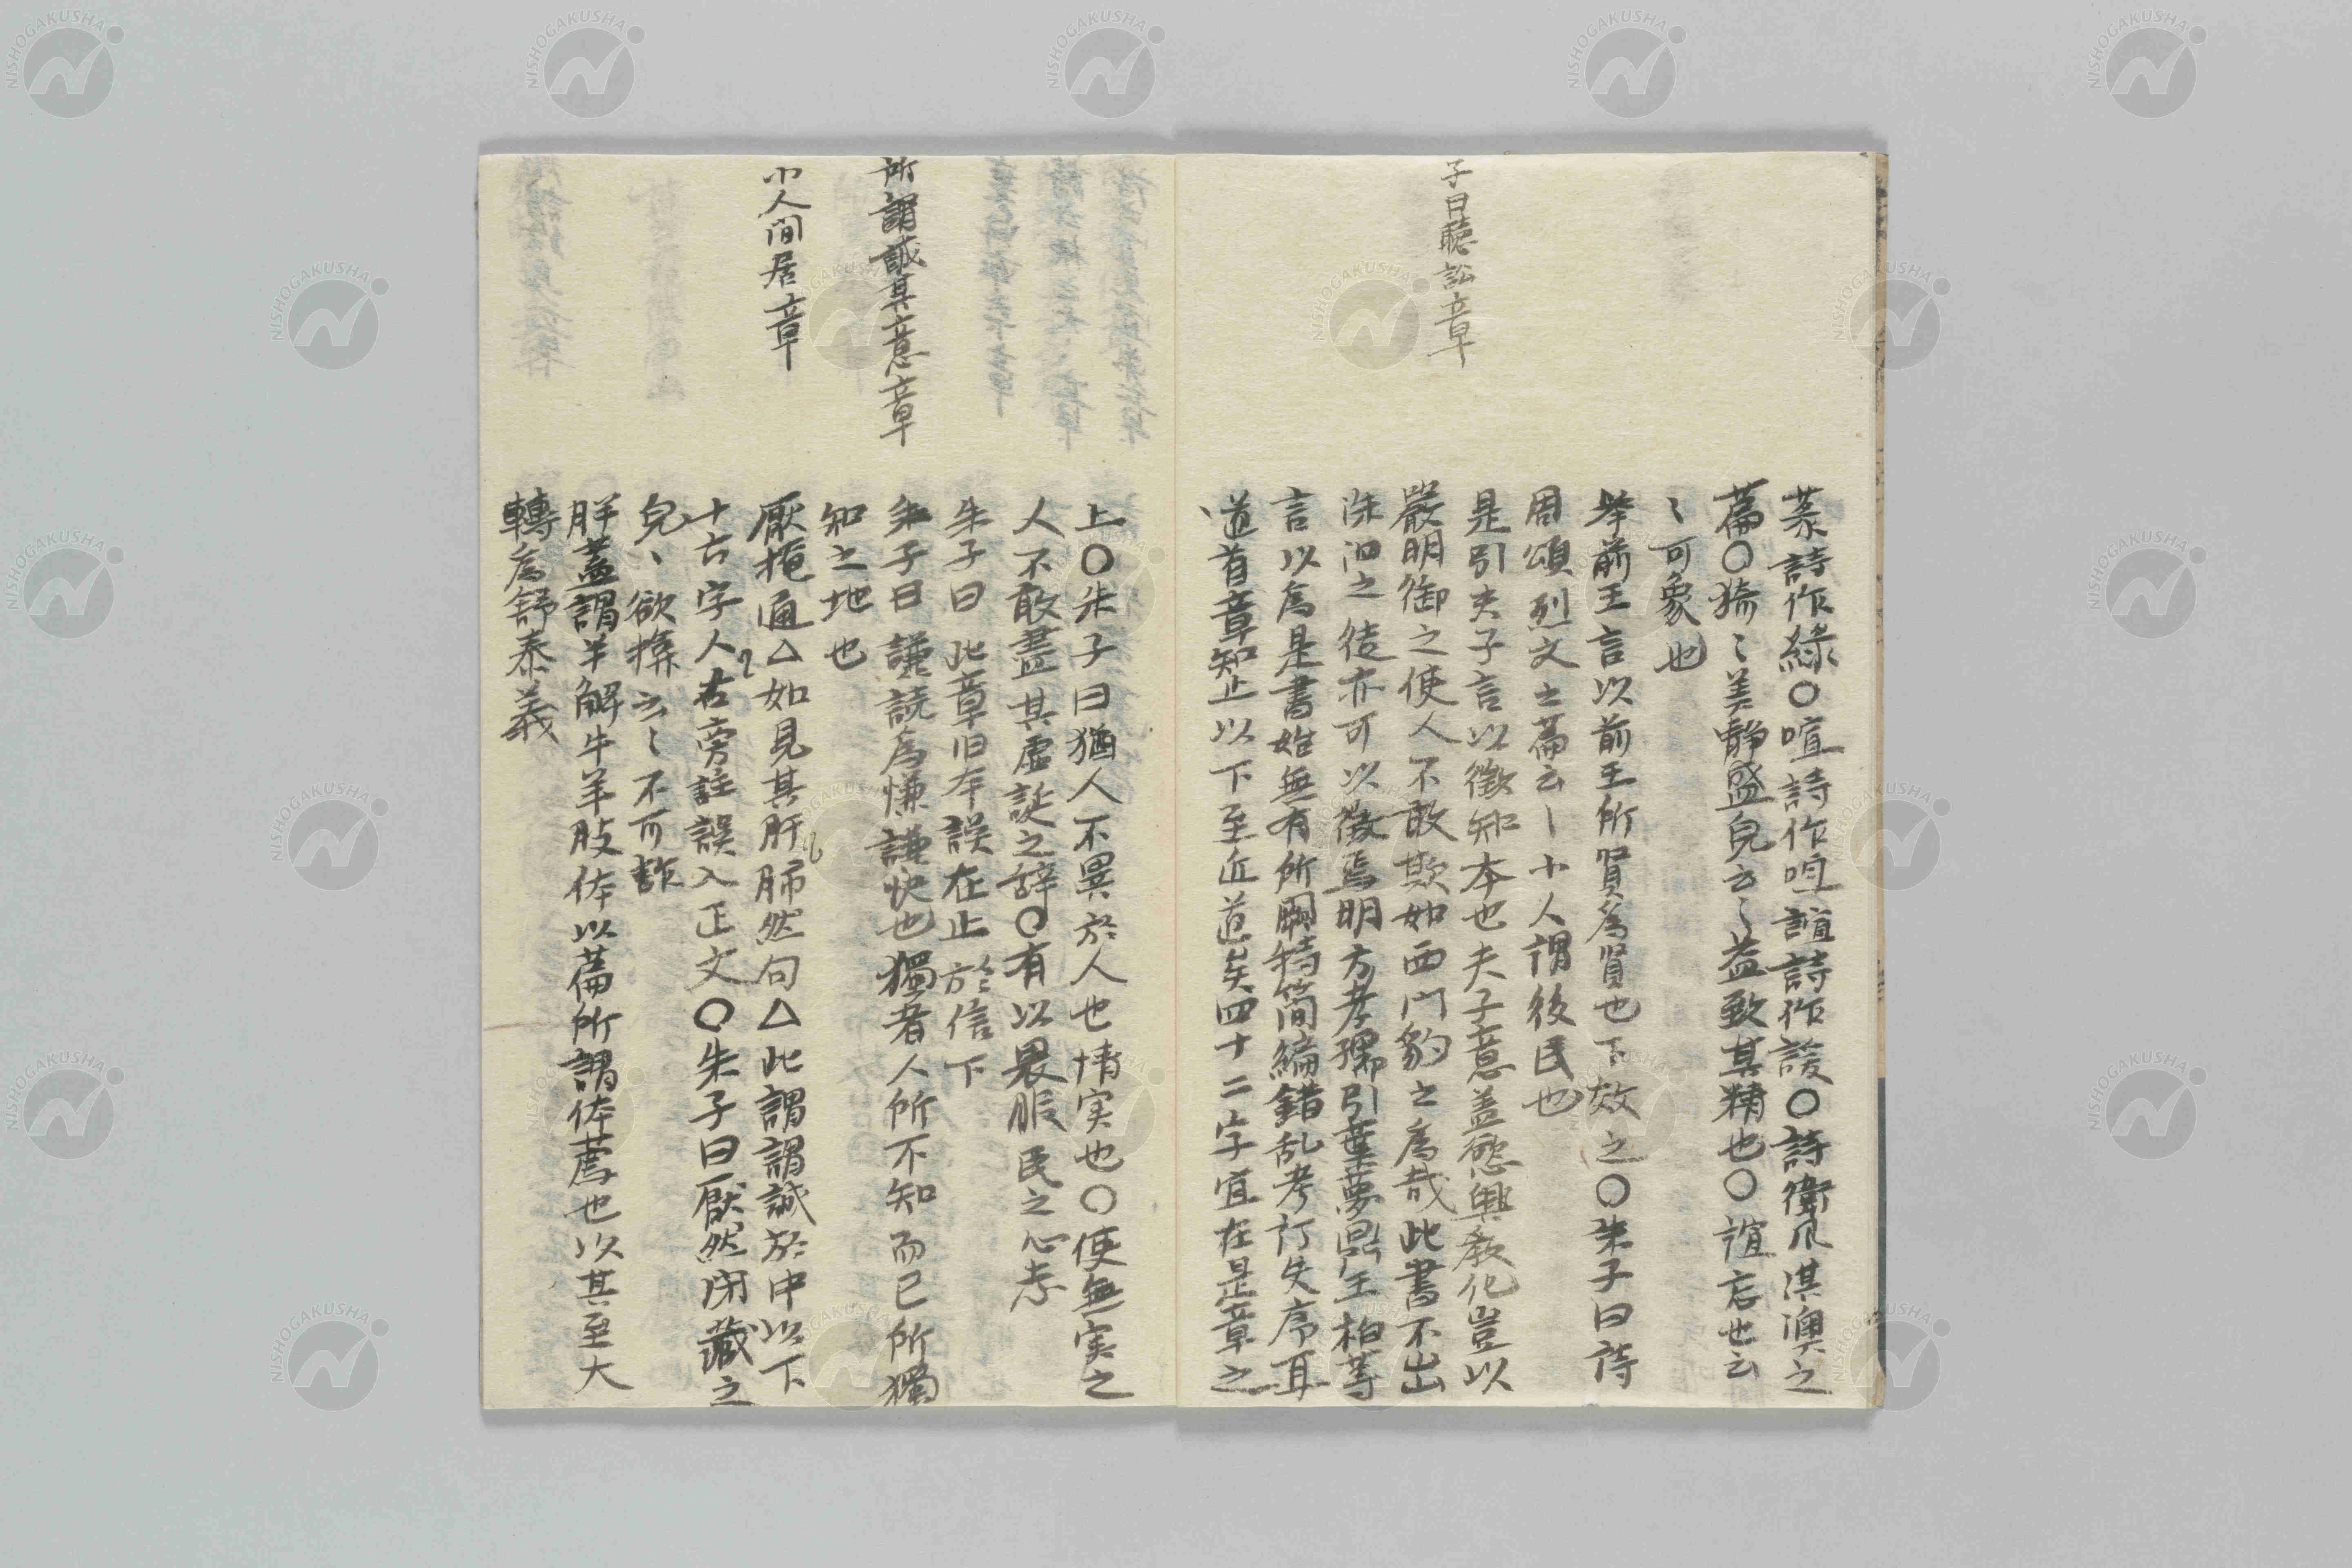 菉詩作綠〇喧詩作咺諠詩作諼〇詩衛風淇澳之
篇〇猗〻美静盛皃云〻益致其精也〇諠忘也云
〻可象也
挙前王言以前王所賢為賢也下效之〇朱子曰詩
周頌烈文之篇云〡小人謂後民也
子曰聽訟章
是引夫子言以徵知本也夫子意蓋慾興教化豈以
嚴明御之使人不敢欺如西門豹之為哉此書不出
洙泗之徒亦可以徵焉明方孝孺引葉夢鼎王柏等
言以為是書始無有所闕特簡編錯乱考訂失序耳
道首章知止以下至近道矣四十二字宜在是章之
上〇朱子曰猶人不異於人也情実也〇使無実之
人不敢盡其虚誕之辞〇有以畏服民之心志
朱子曰此章旧本誤在止於信下
所謂誠其意章
朱子曰謙読為慊謙快也獨者人所不知而已所獨
知之地也
小人間居章
厭揜通△如見其肝肺然句△此謂誠於中以下
十六字人右旁註誤入正文〇朱子曰厭然閉藏之
皃〻欲揜云〻不可詐
胖蓋謂半解牛羊肢体以薦所謂体薦也以其至大
轉為舒泰義
NISHOGAKUSHA